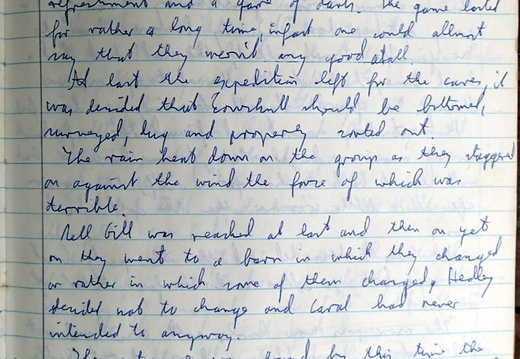 refreshment and a game of darts. The game lasted
for rather a long time, infact one could allmost
say that they wern't any good atall.
At last the expedition left for the caves, it
was decided that should be bottomed,
surveyed, dug and properly sorted out.
The rain beat down on the group as they staggered
on against the wind the force of which was
terrible.
Gill was reached at last and then on yet
on they went to a barn in which they changed
or rather in which some of them changed, Hedley
decided not to change and Carol had never
intended to anyway.
by this time the